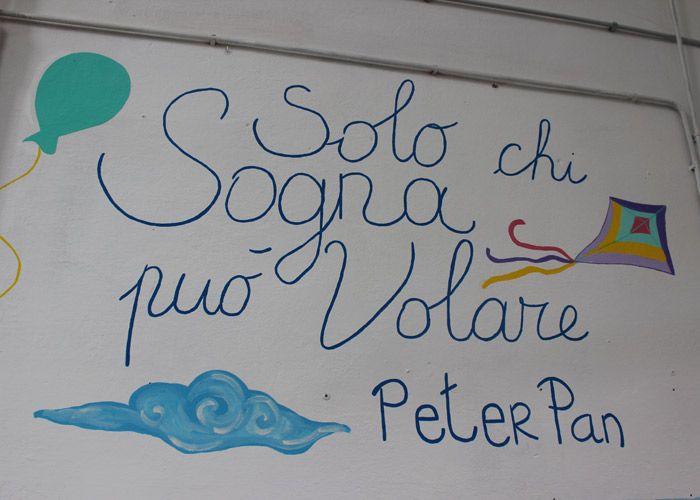 Solo chi
Sogna
può Volare
Peter Pan